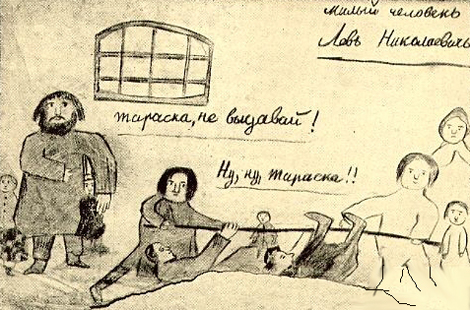 милый человекъ
Левъ Николаевичъ
Тараска, не выдавай!
Ну, ну, Тараска!!